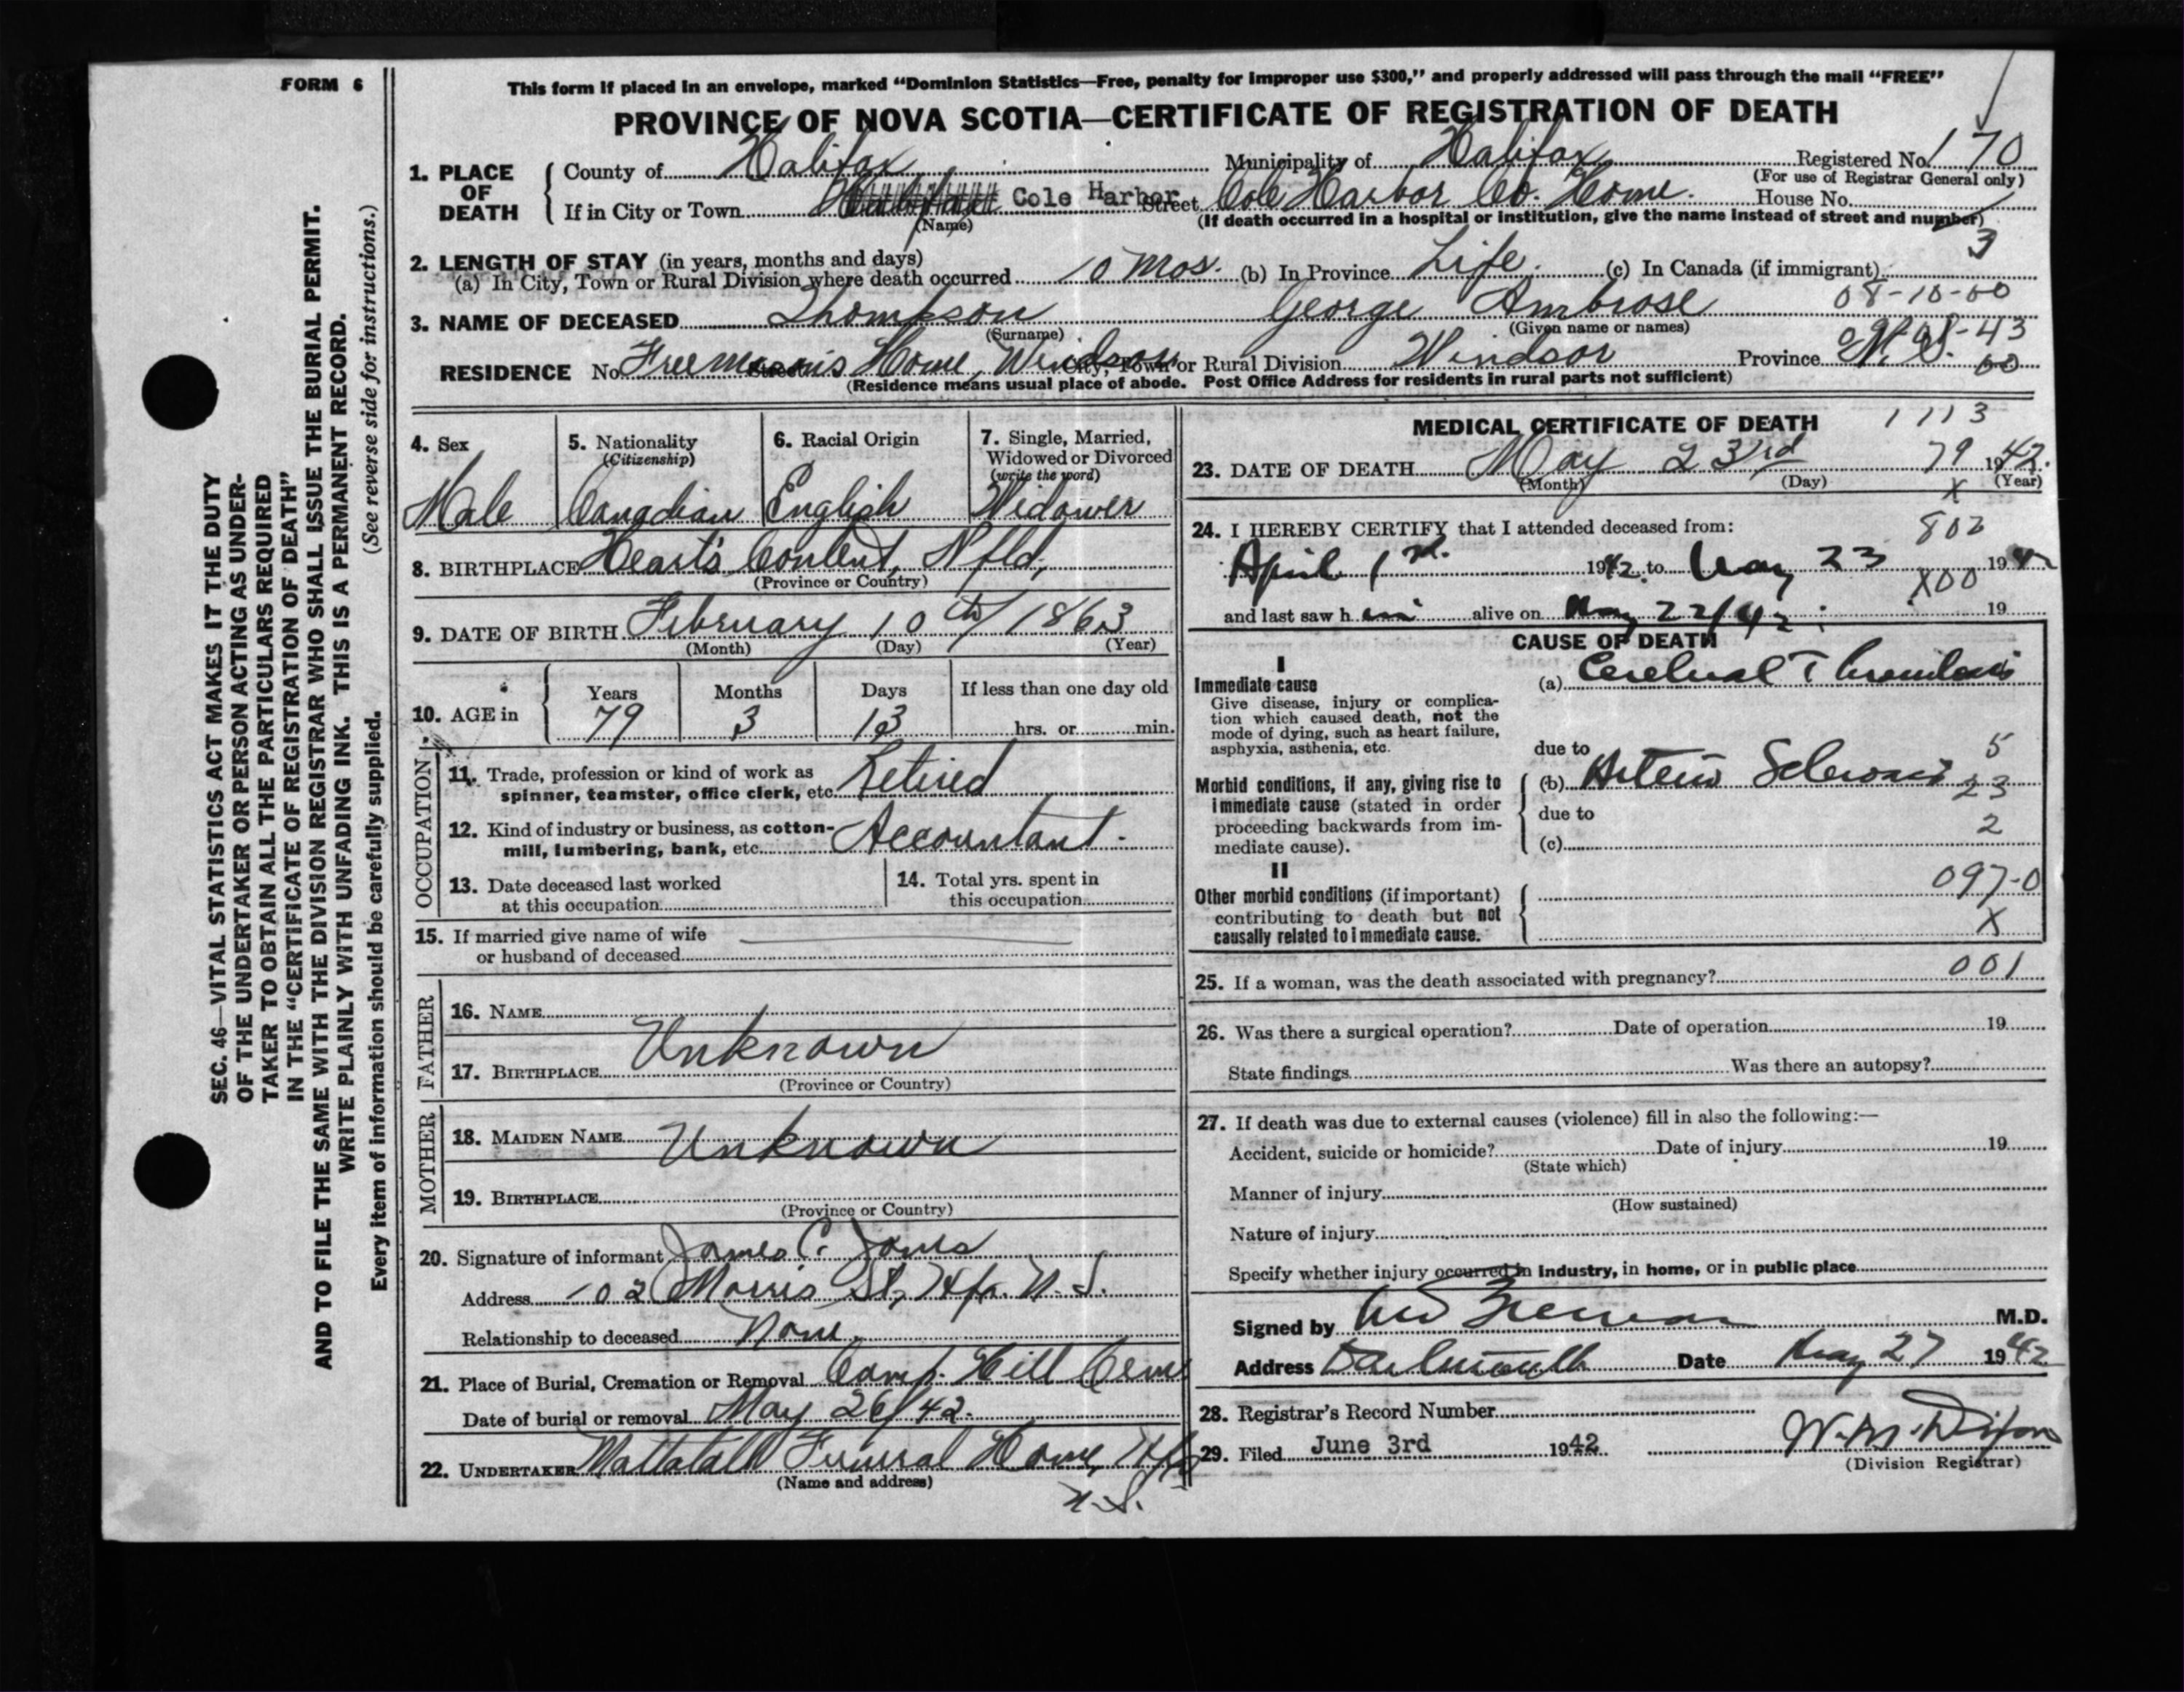 FORM 6
This form if placed in an envelope, marked "Dominion Statistics—Free, penalty for improper use $300," and properly addressed will pass through the mail "FREE"
PROVINCE OF NOVA SCOTIA—CERTIFICATE OF REGISTRATION OF DEATH
SEC. 46—VITAL STATISTICS ACT MAKES IT THE DUTY
OF THE UNDERTAKER OR PERSON ACTING AS UNDER-
TAKER TO OBTAIN ALL THE PARTICULARS REQUIRED
IN THE "CERTIFICATE OF REGISTRATION OF DEATH"
AND TO FILE THE SAME WITH THE DIVISION REGISTRAR WHO SHALL ISSUE THE BURIAL PERMIT.
WRITE PLAINLY WITH UNFADING INK. THIS IS A PERMANENT RECORD.
Every item of information should be carefully supplied. (See reverse side for instructions.)
1. PLACE OF DEATH
County of Halifax Municipality of Halifax Registered No. 170
(For use of Registrar General only)
If in City or Town Halifax Cole Harbor Street Cole Harbor Co. Home. House No.
(Name) (If death occurred in a hospital or institution, give the name instead of street and number)
3
2. LENGTH OF STAY (in years, months and days)
(a) In City, Town or Rural Division where death occurred 10 Mos. (b) In Province Life. (c) In Canada (if immigrant)
08-10-00
3. NAME OF DECEASED Thompson George Ambrose
(Surname) (Given name or names)
43
RESIDENCE No. Freemasons Home, Windsor Street City, Town or Rural Division Windsor Province N.S.
00
(Residence means usual place of abode. Post Office Address for residents in rural parts not sufficient)
4. Sex
Male
5. Nationality
(Citizenship)
Canadian
6. Racial Origin
English
7. Single, Married,
Widowed or Divorced
(write the word)
Widower
8. BIRTHPLACE Heart's Content, Nfld,
(Province or Country)
9. DATE OF BIRTH February 10th/1863
(Month) (Day) (Year)
10. AGE in
Years Months Days If less than one day old
79 3 13 hrs. or min.
OCCUPATION
11. Trade, profession or kind of work as
spinner, teamster, office clerk, etc. Retired
12. Kind of industry or business, as cotton-
mill, lumbering, bank, etc. Accountant.
13. Date deceased last worked
at this occupation
14. Total yrs. spent in
this occupation
15. If married give name of wife
or husband of deceased
FATHER
16. NAME
Unknown
17. BIRTHPLACE
(Province or Country)
MOTHER
18. MAIDEN NAME Unknown
19. BIRTHPLACE
(Province or Country)
20. Signature of informant James C. Jones
Address 102 Morris St, Hfx. N.S.
Relationship to deceased None.
21. Place of Burial, Cremation or Removal Camp. Hill Cem
Date of burial or removal May 26/42.
22. UNDERTAKER Mattatall Funeral Home, Hfx
(Name and address)
N.S.
MEDICAL CERTIFICATE OF DEATH 1113
79
23. DATE OF DEATH May 23rd 1942.
(Month) (Day) (Year)
X
24. I HEREBY CERTIFY that I attended deceased from:
802
April 1st. 1942. to May 23 1942
X00
and last saw him alive on May 22/42. 19
CAUSE OF DEATH
I
Immediate cause
Give disease, injury or complica-
tion which caused death, not the
mode of dying, such as heart failure,
asphyxia, asthenia, etc.
(a) Cerebral Thrombosis
due to
5
Morbid conditions, if any, giving rise to
immediate cause (stated in order
proceeding backwards from im-
mediate cause).
(b) Arterio Sclerosis
23
due to
2
(c)
II
Other morbid conditions (if important)
contributing to death but not
causally related to immediate cause.
097-0
X
001
25. If a woman, was the death associated with pregnancy?
26. Was there a surgical operation? Date of operation 19
State findings Was there an autopsy?
27. If death was due to external causes (violence) fill in also the following:—
Accident, suicide or homicide? Date of injury 19
(State which)
Manner of injury
(How sustained)
Nature of injury
Specify whether injury occurred in industry, in home, or in public place
Signed by M.D.
Address Dartmouth Date May 27 1942
28. Registrar's Record Number
29. Filed June 3rd 1942 W. M. Dixon
(Division Registrar)